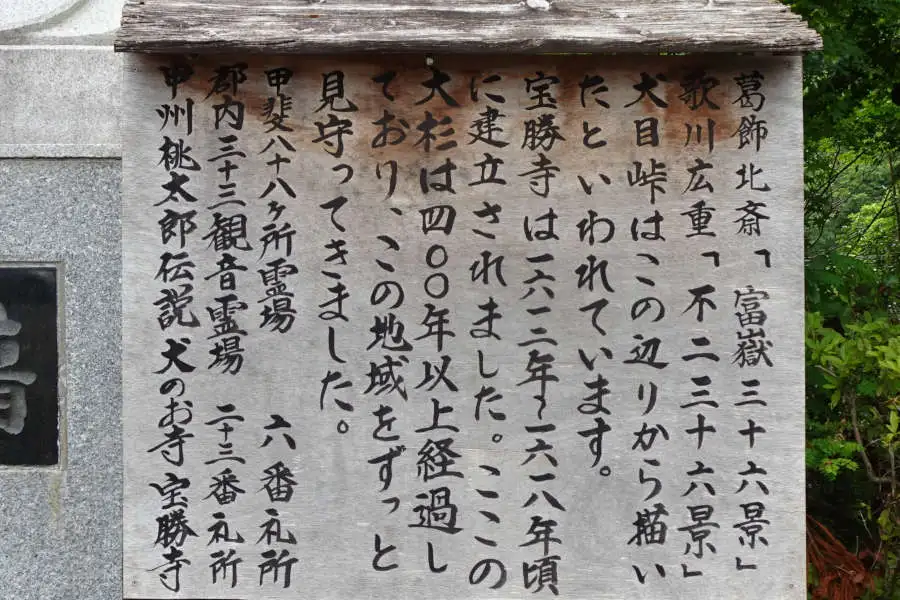 葛飾北斎「富嶽三十六景」
歌川広重「不二三十六景」
犬目峠はこの辺りから描い
たといわれています。
宝勝寺は一六一二年〜一六一八年頃
に建立されました。ここの
大杉は四〇〇年以上経過し
ており、この地域をずっと
見守ってきました。
甲斐八十八ヶ所霊場 六番礼所
郡内三十三観音霊場 二十三番礼所
甲州桃太郎伝説犬のお寺宝勝寺